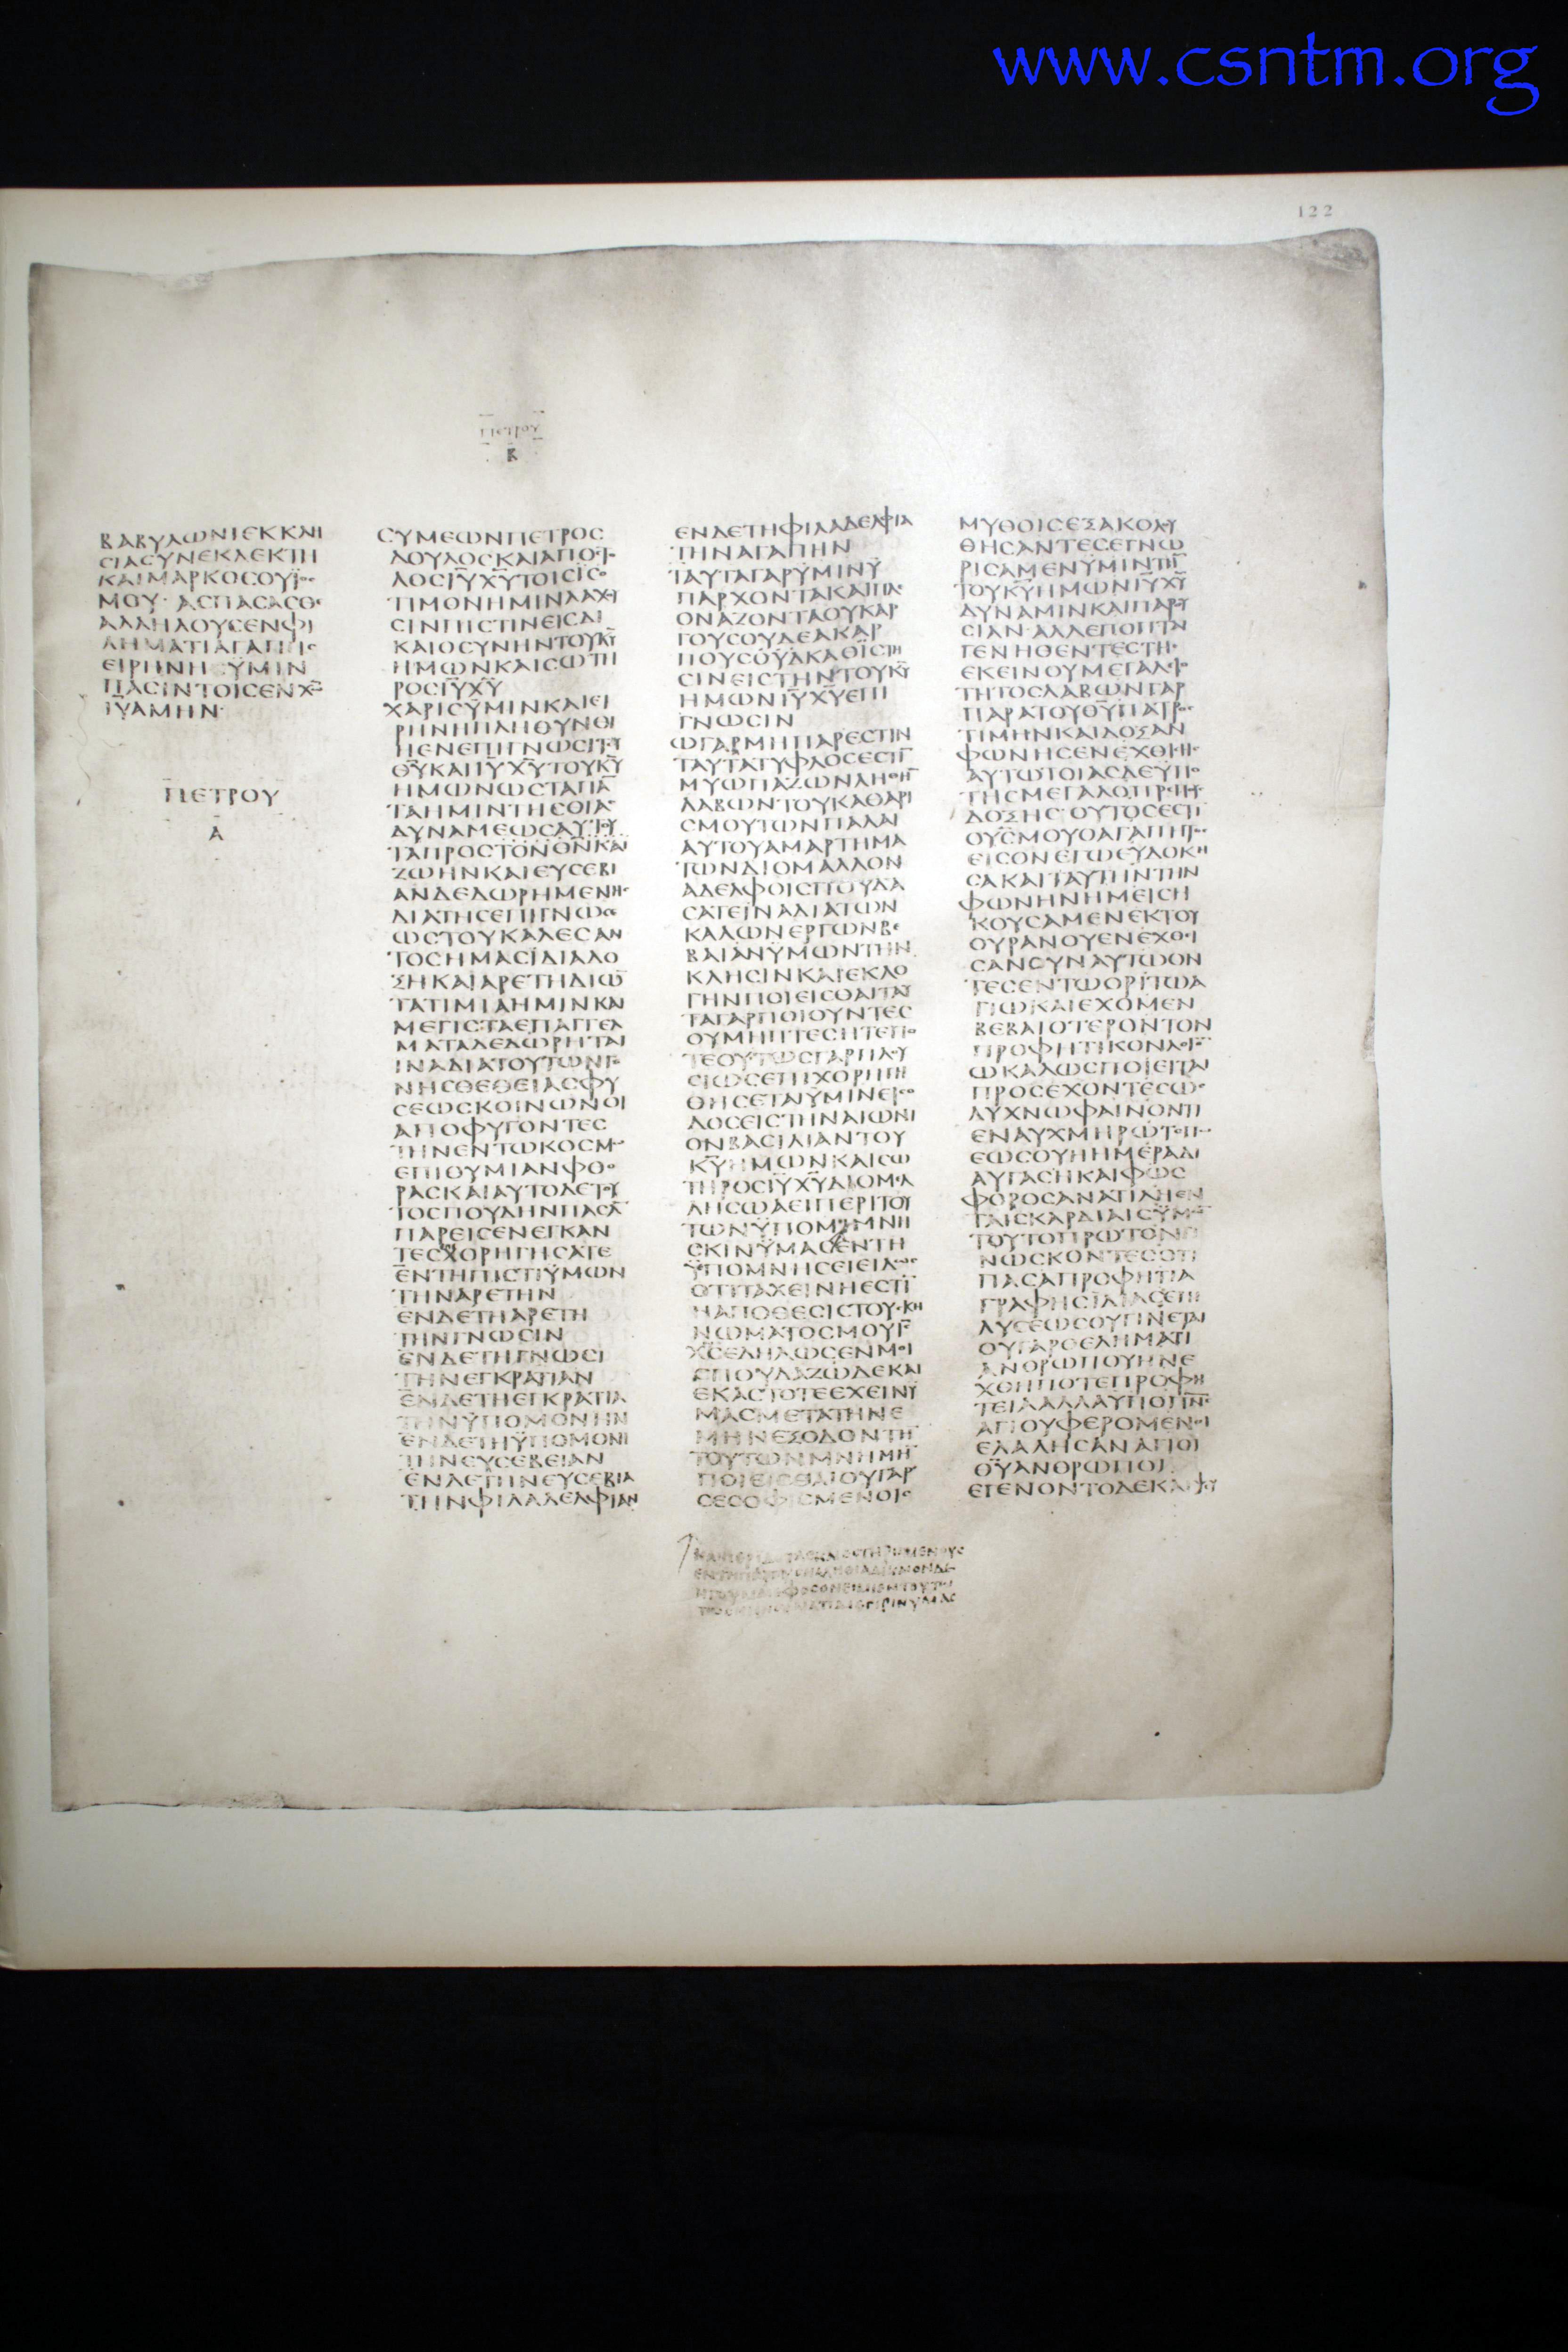 www.csntm.org
122
ΠΕΤΡΟΥ
Β
ΒΑΒΥΛΩΝΙΕΚΚΛΗ
ΣΙΑϹΥΝΕΚΛΕΚΤΗ
ΚΑΙΜΑΡΚΟϹΟΥΪΟϹ
ΜΟΥ· ΑϹΠΑϹΑϹΘΕ
ΑΛΛΗΛΟΥϹΕΝΦΙ
ΛΗΜΑΤΙΑΓΑΠΗϹ
ΕΙΡΗΝΗ ΫΜΙΝ
ΠΑϹΙΝΤΟΙϹΕΝΧΩ
ΙΥΑΜΗΝ·
ΠΕΤΡΟΥ
Α
ϹΥΜΕΩΝΠΕΤΡΟϹ
ΔΟΥΛΟϹΚΑΙΑΠΟϹΤΟ
ΛΟϹΙΥΧΥΤΟΙϹΪϹΟ
ΤΙΜΟΝΗΜΙΝΛΑΧΟΥ
ϹΙΝΠΙϹΤΙΝΕΙϹΔΙ
ΚΑΙΟϹΥΝΗΝΤΟΥΚΥ
ΗΜΩΝΚΑΙϹΩΤΗ
ΡΟϹΙΥΧΥ
ΧΑΡΙϹΫΜΙΝΚΑΙΕΙ
ΡΗΝΗΠΛΗΘΥΝΘΙ
ΗΕΝΕΠΙΓΝΩϹΙΤΟΥ
ΘΥΚΑΙΙΥΧΥΤΟΥΚΥ
ΗΜΩΝΩϹΤΑΠΑ
ΤΑΗΜΙΝΤΗϹΘΙΑϹ
ΔΥΝΑΜΕΩϹΑΥΤΟΥ
ΤΑΠΡΟϹΤΟΝΘΝΚΑΙ
ΖΩΗΝΚΑΙΕΥϹΕΒΙ
ΑΝΔΕΔΩΡΗΜΕΝΗϹ
ΔΙΑΤΗϹΕΠΙΓΝΩϹΕ
ΩϹΤΟΥΚΑΛΕϹΑΝ
ΤΟϹΗΜΑϹΪΔΙΑΔΟ
ΞΗΚΑΙΑΡΕΤΗΔΙΩ
ΤΑΤΙΜΙΑΗΜΙΝΚΑΙ
ΜΕΓΙϹΤΑΕΠΑΓΓΕΛ
ΜΑΤΑΔΕΔΩΡΗΤΑΙ
ΙΝΑΔΙΑΤΟΥΤΩΝΓΕ
ΝΗϹΘΕΘΕΙΑϹΦΥ
ϹΕΩϹΚΟΙΝΩΝΟΙ
ΑΠΟΦΥΓΟΝΤΕϹ
ΤΗΝΕΝΤΩΚΟϹΜΩ
ΕΠΙΘΥΜΙΑΝΦΘΟ
ΡΑϹΚΑΙΑΥΤΟΔΕΤΟΥ
ΤΟϹΠΟΥΔΗΝΠΑϹΑ
ΠΑΡΕΙϹΕΝΕΓΚΑΝ
ΤΕϹΧΟΡΗΓΗϹΑΤΕ
ΕΝΤΗΠΙϹΤΙΫΜΩΝ
ΤΗΝΑΡΕΤΗΝ
ΕΝΔΕΤΗΑΡΕΤΗ
ΤΗΝΓΝΩϹΙΝ
ΕΝΔΕΤΗΓΝΩϹΙ
ΤΗΝΕΓΚΡΑΤΙΑΝ
ΕΝΔΕΤΗΕΓΚΡΑΤΙΑ
ΤΗΝΫΠΟΜΟΝΗΝ
ΕΝΔΕΤΗΫΠΟΜΟΝΙ
ΤΗΝΕΥϹΕΒΕΙΑΝ
ΕΝΔΕΤΗΝΕΥϹΕΒΙΑ
ΤΗΝΦΙΛΑΔΕΛΦΙΑΝ
ΕΝΔΕΤΗΦΙΛΑΔΕΛΦΙΑ
ΤΗΝΑΓΑΠΗΝ
ΤΑΥΤΑΓΑΡΫΜΙΝΫ
ΠΑΡΧΟΝΤΑΚΑΙΠΛΕ
ΟΝΑΖΟΝΤΑΟΥΚΑΡ
ΓΟΥϹΟΥΔΕΑΚΑΡ
ΠΟΥϹΟΥΔΑΚΑΘΪϹΤΗ
ϹΙΝΕΙϹΤΗΝΤΟΥΚΥ
ΗΜΩΝΙΥΧΥΕΠΙ
ΓΝΩϹΙΝ
ΩΓΑΡΜΗΠΑΡΕϹΤΙΝ
ΤΑΥΤΑΤΥΦΛΟϹΕϹΤΙ
ΜΥΩΠΑΖΩΝΛΗΘΗ
ΛΑΒΩΝΤΟΥΚΑΘΑΡΙ
ϹΜΟΥΤΩΝΠΑΛΑΙ
ΑΥΤΟΥΑΜΑΡΤΗΜΑ
ΤΩΝΔΙΟΜΑΛΛΟΝ
ΑΔΕΛΦΟΙϹΠΟΥΔΑ
ϹΑΤΕΪΝΑΔΙΑΤΩΝ
ΚΑΛΩΝΕΡΓΩΝΒΕ
ΒΑΙΑΝΫΜΩΝΤΗΝ
ΚΛΗϹΙΝΚΑΙΕΚΛΟ
ΓΗΝΠΟΙΕΙϹΘΑΙΤΑΥ
ΤΑΓΑΡΠΟΙΟΥΝΤΕϹ
ΟΥΜΗΠΤΕϹΗΤΕΠΟ
ΤΕΟΥΤΩϹΓΑΡΠΛΟΥ
ϹΙΩϹΕΠΙΧΟΡΗΓΗ
ΘΗϹΕΤΑΙΫΜΙΝΕΙϹΟ
ΔΟϹΕΙϹΤΗΝΑΙΩΝΙ
ΟΝΒΑϹΙΛΙΑΝΤΟΥ
ΚΥΗΜΩΝΚΑΙϹΩ
ΤΗΡΟϹΙΥΧΥΔΙΟΜΕΛ
ΛΗϹΩΑΕΙΠΕΡΙΤΟΥ
ΤΩΝΫΠΟΜΙΜΝΗ
ϹΚΙΝΫΜΑϹΕΝΤΗ
ΫΠΟΜΝΗϹΕΙΕΙΔΩϹ
ΟΤΙΤΑΧΕΙΝΗΕϹΤΙ
ΗΑΠΟΘΕϹΙϹΤΟΥϹΚΗ
ΝΩΜΑΤΟϹΜΟΥΚ
ΧϹΕΔΗΛΩϹΕΝΜΟΙ
ϹΠΟΥΔΑΖΩΔΕΚΑΙ
ΕΚΑϹΤΟΤΕΕΧΕΙΝΫ
ΜΑϹΜΕΤΑΤΗΝΕ
ΜΗΝΕΞΟΔΟΝΤΗ
ΤΟΥΤΩΝΜΝΗΜΗ
ΠΟΙΕΙϹΘΑΙΟΥΓΑΡ
ϹΕϹΟΦΙϹΜΕΝΟΙϹ
ΜΥΘΟΙϹΕΞΑΚΟΛΟΥ
ΘΗϹΑΝΤΕϹΕΓΝΩ
ΡΙϹΑΜΕΝΫΜΙΝΤΗ
ΤΟΥΚΥΗΜΩΝΙΥΧΥ
ΔΥΝΑΜΙΝΚΑΙΠΑΡΟΥ
ϹΙΑΝ·ΑΛΛΕΠΟΠΤΑΙ
ΓΕΝΗΘΕΝΤΕϹΤΗϹ
ΕΚΕΙΝΟΥΜΕΓΑΛΙΟ
ΤΗΤΟϹΛΑΒΩΝΓΑΡ
ΠΑΡΑΤΟΥΘΥΠΑΤΡΟϹ
ΤΙΜΗΝΚΑΙΔΟΞΑΝ
ΦΩΝΗϹΕΝΕΧΘΙϹΗϹ
ΑΥΤΩΤΟΙΑϹΔΕΫΠΟ
ΤΗϹΜΕΓΑΛΟΠΡΕΠΗϹ
ΔΟΞΗϹ·ΟΥΤΟϹΕϹΤΙ
ΟΥϹΜΟΥΟΑΓΑΠΗΤΟϹ
ΕΙϹΟΝΕΓΩΕΥΔΟΚΗ
ϹΑΚΑΙΤΑΥΤΗΝΤΗΝ
ΦΩΝΗΝΗΜΕΙϹΗ
ΚΟΥϹΑΜΕΝΕΚΤΟΥ
ΟΥΡΑΝΟΥΕΝΕΧΘΙ
ϹΑΝϹΥΝΑΥΤΩΟΝ
ΤΕϹΕΝΤΩΟΡΙΤΩΑ
ΓΙΩΚΑΙΕΧΟΜΕΝ
ΒΕΒΑΙΟΤΕΡΟΝΤΟΝ
ΠΡΟΦΗΤΙΚΟΝΛΟΓΟ
ΩΚΑΛΩϹΠΟΙΕΙΤΑΙ
ΠΡΟϹΕΧΟΝΤΕϹΩϹ
ΛΥΧΝΩΦΑΙΝΟΝΤΙ
ΕΝΑΥΧΜΗΡΩΤΟΠΩ
ΕΩϹΟΥΗΗΜΕΡΑΔΙ
ΑΥΓΑϹΗΚΑΙΦΩϹ
ΦΟΡΟϹΑΝΑΤΙΛΗΕΝ
ΤΑΙϹΚΑΡΔΙΑΙϹΫΜΩ
ΤΟΥΤΟΠΡΩΤΟΝΓΙ
ΝΩϹΚΟΝΤΕϹΟΤΙ
ΠΑϹΑΠΡΟΦΗΤΙΑ
ΓΡΑΦΗϹΪΔΙΑϹΕΠΙ
ΛΥϹΕΩϹΟΥΓΙΝΕΤΑΙ
ΟΥΓΑΡΘΕΛΗΜΑΤΙ
ΑΝΘΡΩΠΟΥΗΝΕ
ΧΘΗΠΟΤΕΠΡΟΦΗ
ΤΕΙΑΑΛΛΑΫΠΟΠΝϹ
ΑΓΙΟΥΦΕΡΟΜΕΝΟΙ
ΕΛΑΛΗϹΑΝΑΓΙΟΙ
ΘΥΑΝΘΡΩΠΟΙ
ΕΓΕΝΟΝΤΟΔΕΚΑΙΨΕΥ